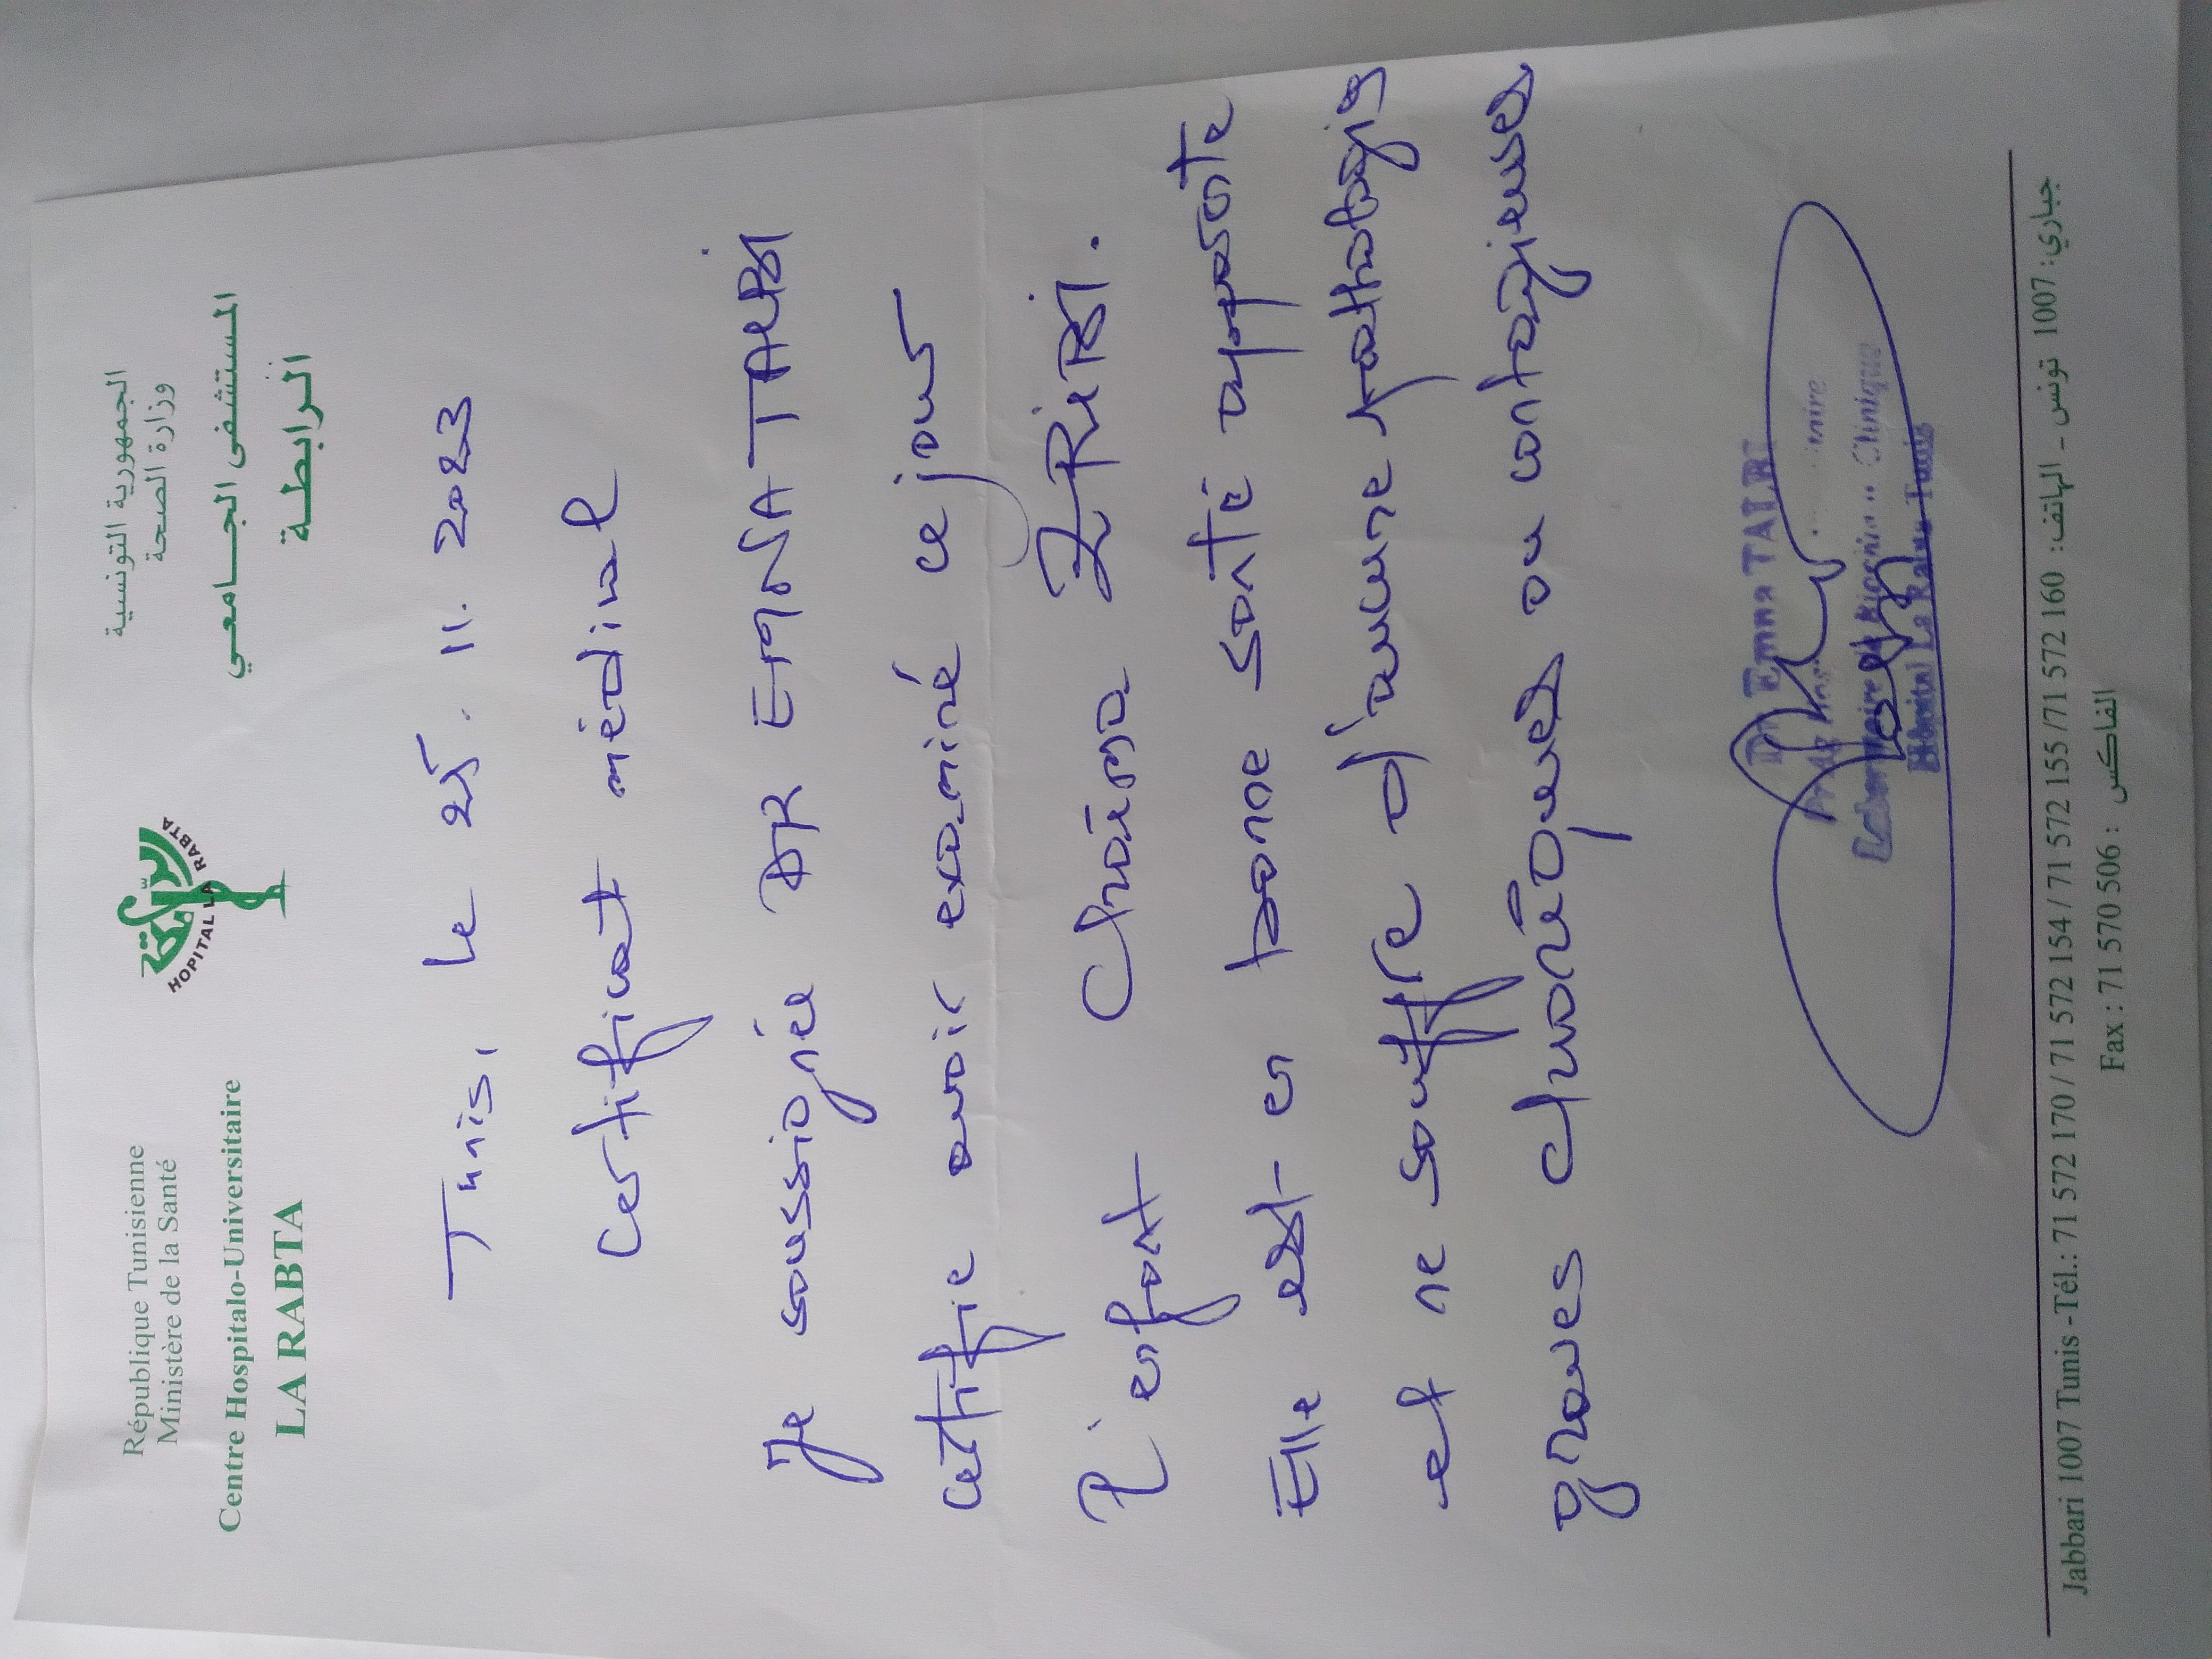 République Tunisienne
Ministère de la Santé
Centre Hospitalo-Universitaire
LA RABTA
الرابطة
HOPITAL LA RABTA
الجمهورية التونسية
وزارة الصحة
المستشفى الجـــامعـي
الرابطـة
Tunis, le 11. 2023
Certificat médical
Je soussignée DR EMNA TALBI
certifie avoir examiné ce jour
l'enfant Chaïma ZRIBI.
Elle est en bonne santé apparente
et ne souffre d'aucune pathologie
graves chroniques ou contagieuses
Dr Emna TALBI
Clinique
Hôpital La Rabta Tunis
Jabbari 1007 Tunis - Tél.: 71 572 170 / 71 572 154 / 71 572 155 /71 572 160 جباري: 1007 تونس - الهاتف:
Fax : 71 570 506 : الفاكس